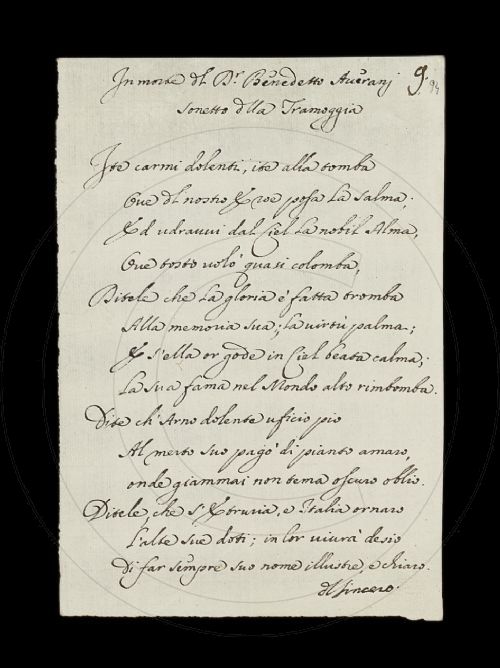 In morte dl Dr. Benedetto Averanj
9.
94
Sonetto dlla Tramoggia
Ite carmi dolenti, ite alla tomba
Ove dl nostro Eroe posa la salma.
Ed udravvi dal Ciel la nobil Alma,
Ove tosto volò quasi colomba,
Ditele che la gloria è fatta tromba
Alla memoria sua, la virtù palma;
E s'ella or gode in Ciel beata calma,
La sua fama nel Mondo alto rimbomba.
Dite ch'Arno dolente uficio pio
Al merto suo pagò di pianto amaro,
onde giammai non tema oscuro oblio.
Ditele, che s'Etruria, e Italia ornaro
L'alte sue doti; in lor vivrà desio
Di far sempre suo nome illustre, e chiaro.
dl Sincero.